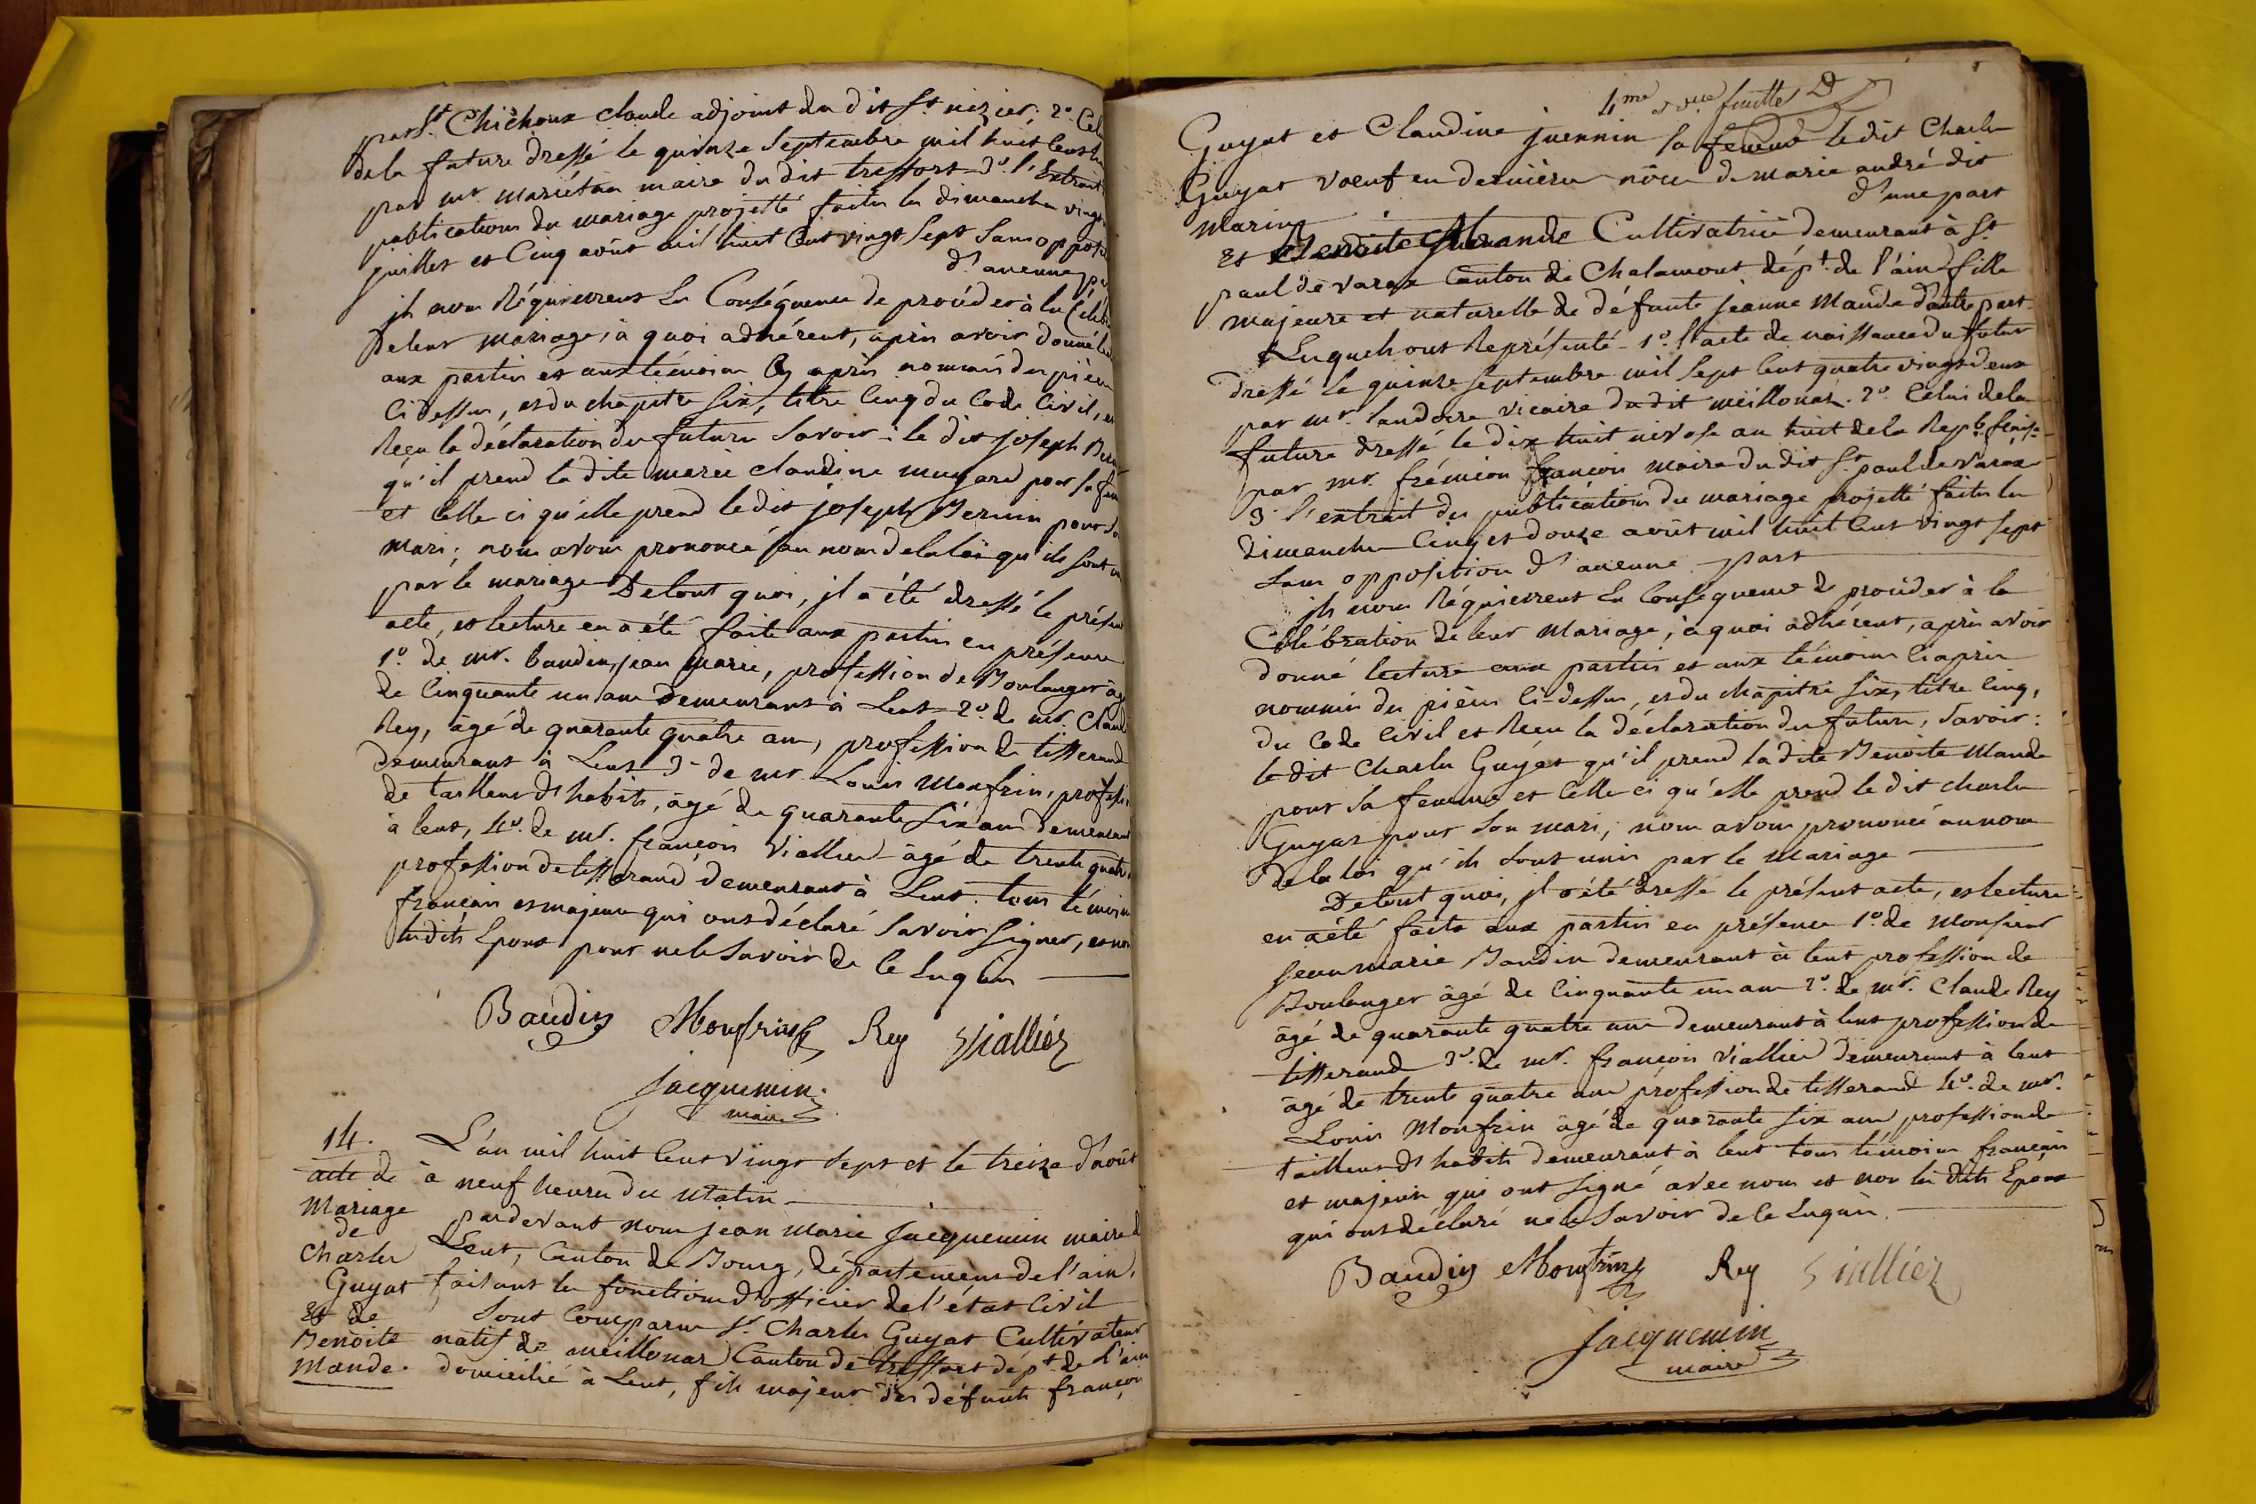 par Sr. Chichoux claude adjoint du dit St. nizier; 2° Cel
de la future dressé le quinze Septembre mil huit Cent
par mr. mariétan maire du dit treffort 3° l'Extrait
publications du mariage projetté faites les dimanches vingt
juillet et Cinq août mil huit Cent vingt Sept Sans oppos
d'aucune p
jls nous Réquierrent En Conséquence de procéder à la Célé
De leur mariage, à quoi adhérent, après avoir donné le
aux parties et aux témoins Cy après nommés des pièces
Ci Dessus, et du chapitre Six, titre Cinq du Code Civil, et
Reçu la déclaration des futurs Savoir: le dit joseph Ber
qu'il prend la dite marie claudine mugard pour sa fem
et Celle ci qu'elle prend le dit joseph Bernin pour So
mari; nous avons prononcé au nom de la loi qu'ils sont u
par le mariage De tout quoi, jl a été dressé le présent
acte, et lecture en a été faite aux parties en présence
1° de mr. baudin, jean marie, profession de Boulanger âg
de Cinquante un ans Demeurant à Lent 2° de mr. Claud
Rey, âgé de quarante quatre ans, profession de tisserand
demeurant à Lent 3° de mr. Louis Monfrin, professi
de tailleur d'habits, âgé de quarante Six ans demeurant
à lent, 4° de mr. françois Viallier âgé de trente quatr
profession de tisserand demeurant à Lent. tous témoins
français et majeurs qui ont déclaré Savoir Signer, et non
lesdits Epoux pour ne le Savoir de Ce Enquis
Baudin Monfrin Rey Viallier
Jacquemin
maire
14.
acte de
Mariage
de
Charles
Guyat
Et de
Benoite
Mande.
L'an mil huit Cent vingt Sept et le treize d'août
à neuf heures du Matin
pardevant nous jean marie Jacquemin maire d
Lent, Canton de Bourg, département de l'ain,
faisant les fonctions d'officier de l'état Civil
Sont Comparus Sr. Charles Guyat Cultivateur
natif de meillonas Canton de treffort dépt. de l'ain
domicilié à Lent, fils majeur des défunts françois
4me feuillet
Guyat et Claudine juennin sa femme le dit Charles
Guyat vœuf en dernières nôces de marie andré dit
Marin d'une part
Et Benoite Mande Cultivatrice demeurant à St.
paul de varax Canton de Chalamont dépt. de l'ain fille
majeure et naturelle de défunte jeanne Mande d'autre part
Lesquels ont Représenté 1° l'acte de naissance du futur
dressé le quinze Septembre mil Sept Cent quatre vingt deux
par mr. vicaire du dit meillonas. 2° Celui de la
future dressé le dix huit nivose an huit de la Repb. fçaise
par mr. frémion françois maire du dit St. paul de varax
3° l'extrait des publications du mariage projetté faites les
dimanches Cinq et douze août mil huit Cent vingt sept
Sans opposition d'aucune part
jls nous Réquierrent En Conséquence de procéder à la
Célébration de leur Mariage, à quoi adhérent, après avoir
donné lecture aux parties et aux témoins Ci après
nommés des pièces Ci-dessus, et du chapitre Six, titre Cinq,
du Code Civil et Reçu la déclaration des futurs, Savoir:
le dit Charles Guyat qu'il prend la dite Benoite Mande
pour Sa femme et Celle ci qu'elle prend le dit charles
Guyat pour Son mari; nous avons prononcé au nom
De la loi qu'ils Sont unis par le Mariage
De tout quoi, jl a été dressé le présent acte, et lecture
en a été faite aux parties en présence 1° de Monsieur
jean marie Baudin demeurant à lent profession de
Boulanger âgé de Cinquante un ans 2° de mr. Claude Rey
âgé de quarante quatre ans demeurant à lent profession de
tisserand 3° de mr. françois Viallier demeurant à lent
âgé de trente quatre ans profession de tisserand 4° de mr.
Louis Monfrin âgé de quarante six ans profession de
tailleur d'habits demeurant à lent tous témoins français
et majeurs qui ont signé avec nous et non les dits Epoux
qui ont déclaré ne le Savoir de Ce Enquis.
Baudin Monfrin Rey Viallier
Jacquemin
maire